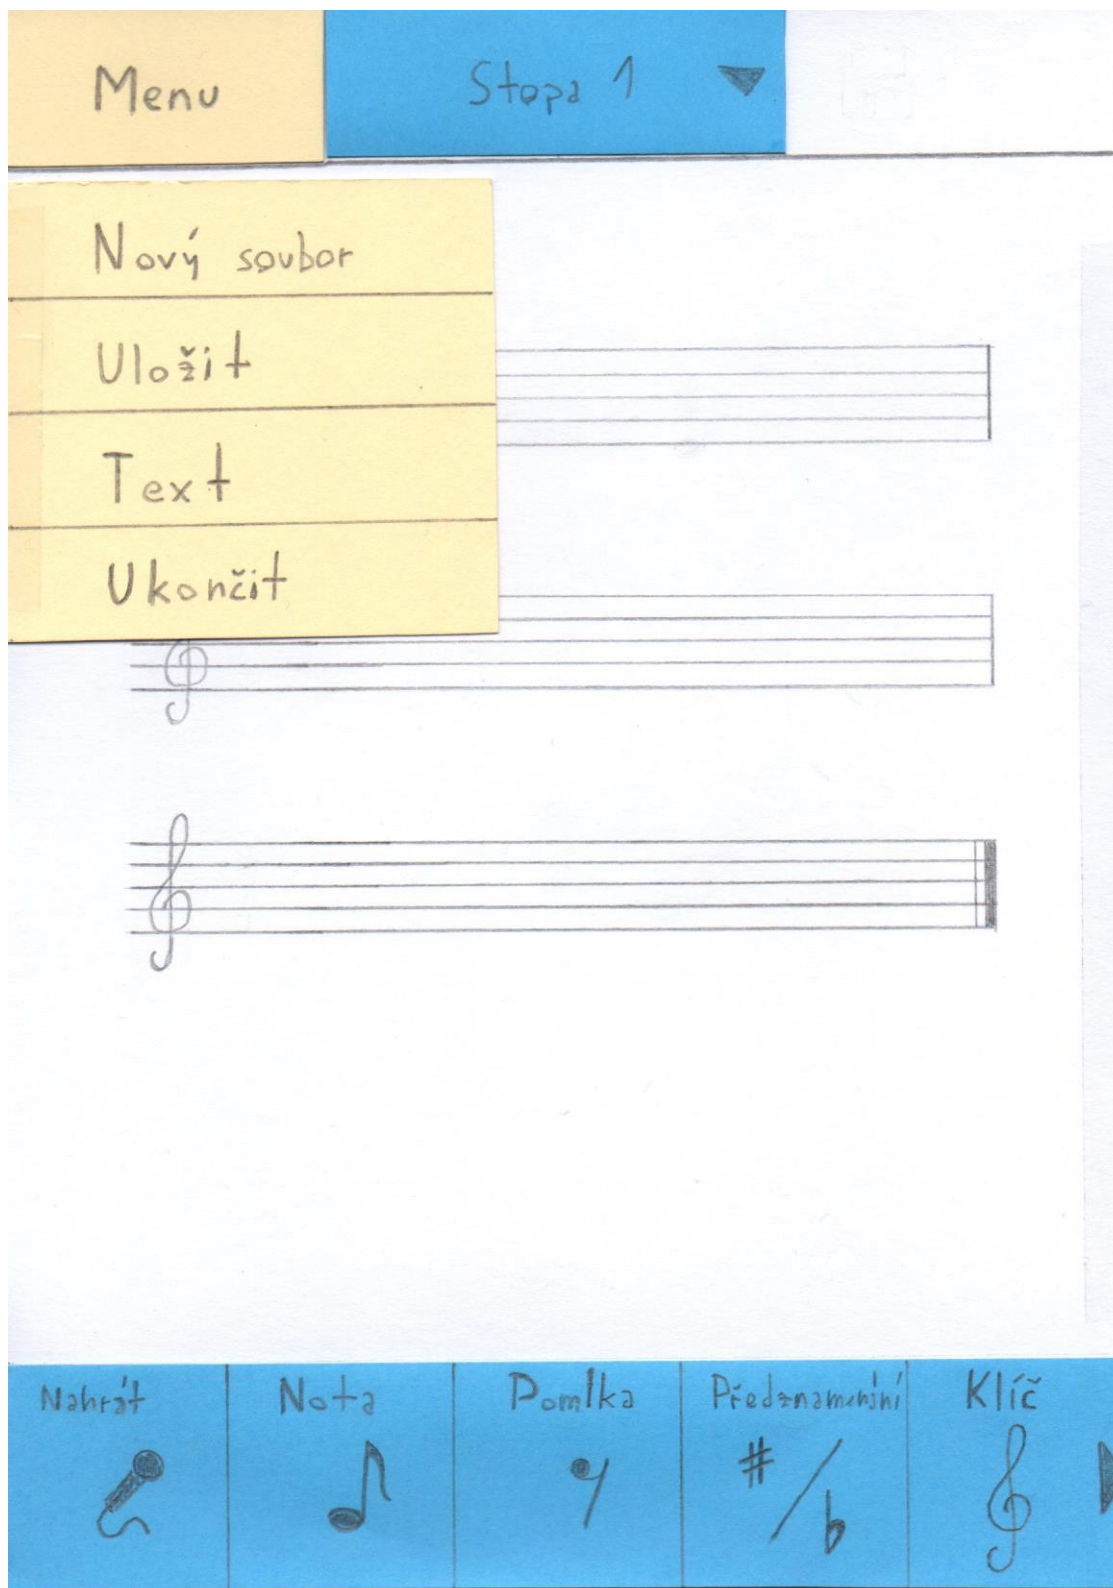 Menu
Stopa 1
Nový soubor
Uložit
Text
Ukončit
Nahrát
Nota
Pomlka
Předznamenání
Klíč